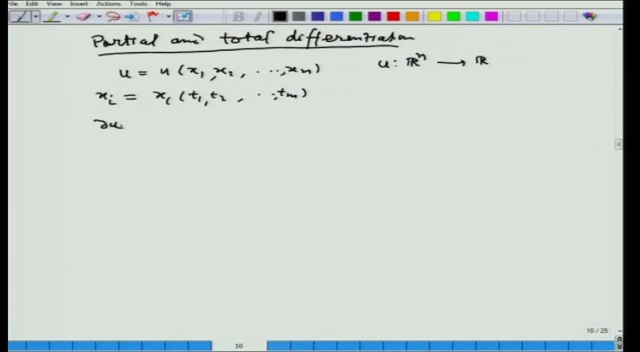 File Edit View Insert Actions Tools Help
Partial and total differentiation
u = u (x₁, x₂, ..., xₙ) u: ℝⁿ → ℝ
xᵢ = xᵢ (t₁, t₂, ..., tₘ)
∂u
10 / 25
10